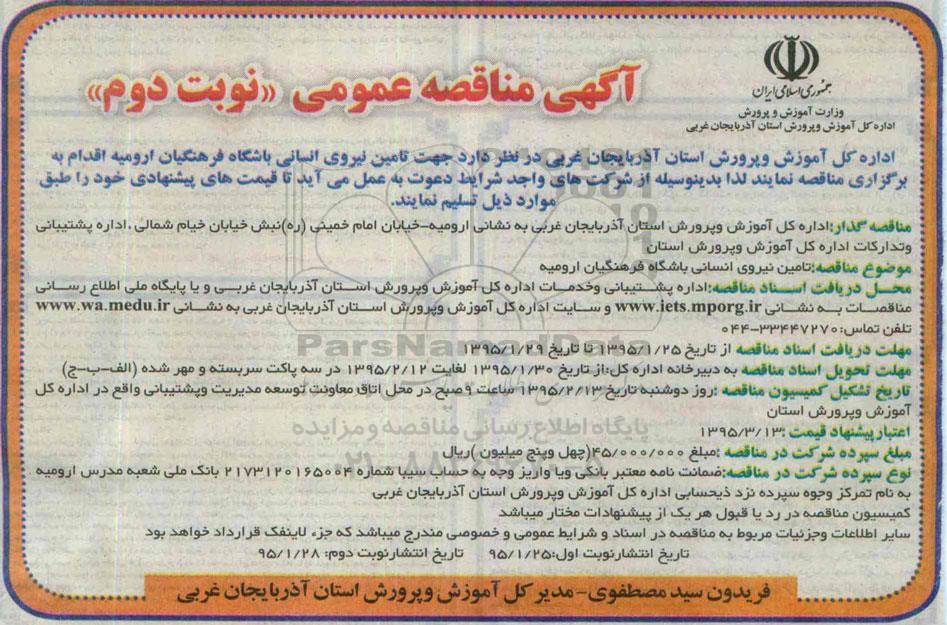 جمهوری اسلامی ایران
وزارت آموزش و پرورش
اداره کل آموزش وپرورش استان آذربایجان غربی
آگهی مناقصه عمومی «نوبت دوم»
اداره کل آموزش وپرورش استان آذربایجان غربی در نظر دارد جهت تامین نیروی انسانی باشگاه فرهنگیان ارومیه اقدام به
برگزاری مناقصه نمایند لذا بدینوسیله از شرکت های واجد شرایط دعوت به عمل می آید تا قیمت های پیشنهادی خود را طبق
موارد ذیل تسلیم نمایند.
مناقصه گذار:اداره کل آموزش وپرورش استان آذربایجان غربی به نشانی ارومیه-خیابان امام خمینی (ره)نبش خیابان خیام شمالی ،اداره پشتیبانی
وتدارکات اداره کل آموزش وپرورش استان
موضوع مناقصه:تامین نیروی انسانی باشگاه فرهنگیان ارومیه
محل دریافت اسناد مناقصه:اداره پشتیبانی وخدمات اداره کل آموزش وپرورش استان آذربایجان غربی و یا پایگاه ملی اطلاع رسانی
مناقصات به نشانی www.iets.mporg.ir و سایت اداره کل آموزش وپرورش استان آذربایجان غربی به نشانی www.wa.medu.ir
تلفن تماس: ۳۳۴۴۷۲۷۰-۰۴۴
مهلت دریافت اسناد مناقصه از تاریخ ۱۳۹۵/۱/۲۵ تا تاریخ ۱۳۹۵/۱/۲۹
مهلت تحویل اسناد مناقصه به دبیرخانه اداره کل:از تاریخ ۱۳۹۵/۱/۳۰ لغایت ۱۳۹۵/۲/۱۲ در سه پاکت سربسته و مهر شده (الف-ب-ج)
تاریخ تشکیل کمیسیون مناقصه :روز دوشنبه تاریخ ۱۳۹۵/۲/۱۳ ساعت ۹صبح در محل اتاق معاونت توسعه مدیریت وپشتیبانی واقع در اداره کل
آموزش وپرورش استان
اعتبار پیشنهاد قیمت :۱۳۹۵/۳/۱۳
مبلغ سپرده شرکت در مناقصه :مبلغ ۴۵/۰۰۰/۰۰۰(چهل وپنج میلیون )ریال
نوع سپرده شرکت در مناقصه:ضمانت نامه معتبر بانکی ویا واریز وجه به حساب سیبا شماره ۲۱۷۳۱۲۰۱۶۵۰۰۴ بانک ملی شعبه مدرس ارومیه
به نام تمرکز وجوه سپرده نزد ذیحسابی اداره کل آموزش وپرورش استان آذربایجان غربی
کمیسیون مناقصه در رد یا قبول هر یک از پیشنهادات مختار میباشد
سایر اطلاعات وجزئیات مربوط به مناقصه در اسناد و شرایط عمومی و خصوصی مندرج میباشد که جزء لاینفک قرارداد خواهد بود
تاریخ انتشارنوبت اول:۹۵/۱/۲۵ تاریخ انتشارنوبت دوم: ۹۵/۱/۲۸
فریدون سید مصطفوی- مدیر کل آموزش وپرورش استان آذربایجان غربی
ParsNamadData
پایگاه اطلاع رسانی مناقصه و مزایده